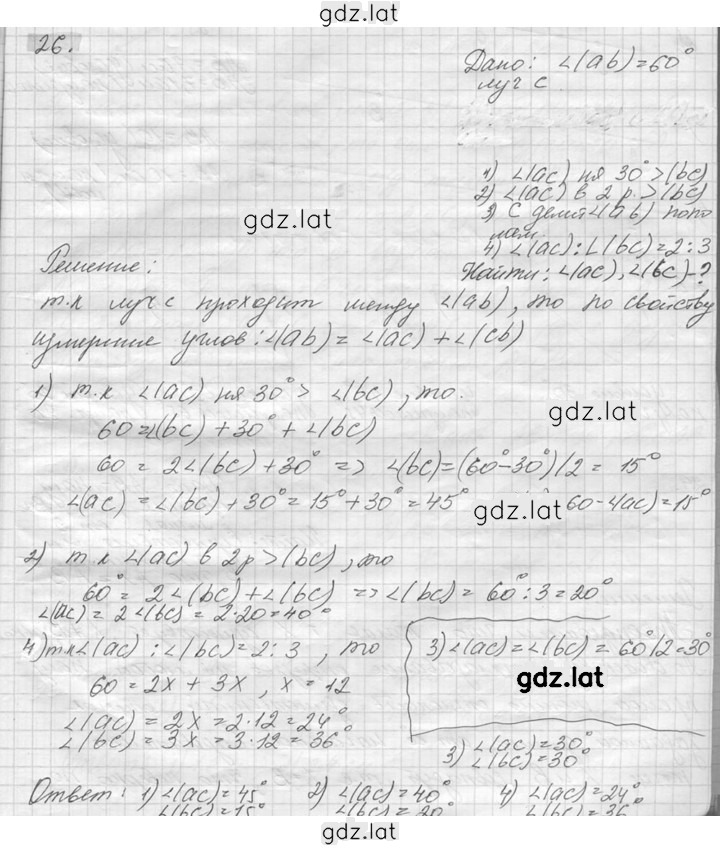 gdz.lat
26.
Дано: ∠(ab)=60°
луч c
1) ∠(ac) на 30° > (bc)
2) ∠(ac) в 2 р. > (bc)
3) c делит ∠(ab) попо
лам
4) ∠(ac):∠(bc)=2:3
Найти: ∠(ac), ∠(bc)-?
gdz.lat
Решение:
т.к луч c проходит между ∠(ab), то по свойству
измерение углов: ∠(ab) = ∠(ac) + ∠(cb)
1) т.к ∠(ac) на 30° > ∠(bc), то.
60=∠(bc) + 30° + ∠(bc)
gdz.lat
60 = 2∠(bc) + 30° => ∠(bc)=(60°-30°)/2 = 15°
∠(ac) = ∠(bc) + 30° = 15° + 30° = 45° 60-∠(ac)=15°
gdz.lat
2) т.к ∠(ac) в 2 р > (bc), то
60° = 2∠(bc) + ∠(bc) => ∠(bc) = 60°:3 = 20°
∠(ac) = 2∠(bc) = 2·20 = 40°
4) т.к ∠(ac) : ∠(bc) = 2:3, то
3) ∠(ac) = ∠(bc) = 60°/2=30°
gdz.lat
60 = 2x + 3x, x = 12
∠(ac) = 2x = 2·12 = 24°
∠(bc) = 3x = 3·12 = 36°
3) ∠(ac)=30°
∠(bc)=30°
Ответ: 1) ∠(ac)=45° 2) ∠(ac)=40° 4) ∠(ac)=24°
∠(bc)=15° ∠(bc)=20 ∠(bc)=36°
gdz.lat